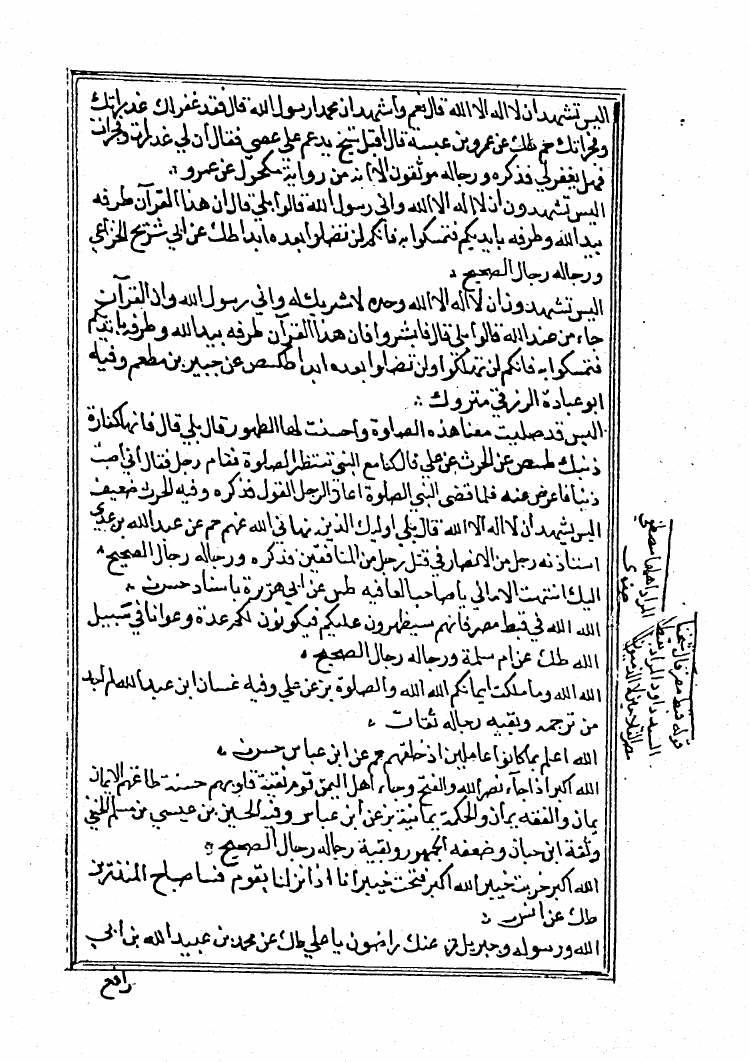 اليس تشهد ان لا اله الا الله قال نعم واشهد ان محمدا رسول الله قال فقد غفر لك غدراتك
وفجراتك حم طك عن عمرو بن عبسة قال اقبل شيخ يدعم على عصى فقال ان لي غدرات وفجرات
فهل يغفر لي فذكره ورجاله موثقون الا انه من رواية مكحول عن عمرو
اليس تشهدون ان لا اله الا الله واني رسول الله قالوا بلى قال ان هذا القرآن طرفه
بيد الله وطرفه بايديكم فتمسكوا به فانكم لن تضلوا بعده ابدا طك عن ابي شريح الخزاعي
ورجاله رجال الصحيح
اليس تشهدون ان لا اله الا الله وحده لا شريك له واني رسول الله وان القرآن
جاء من عند الله قالوا بلى قال فابشروا فان هذا القرآن طرفه بيد الله وطرفه بايديكم
فتمسكوا به فانكم لن تهلكوا ولن تضلوا بعده ابدا طكص عن جبير بن مطعم وفيه
ابو عبادة الزرقي متروك
اليس قد صليت معنا هذه الصلوة واحسنت لها الطهور قال بلى قال فانها كفارة
ذنبك طص عن الحرث عن علي قال كنا مع النبي ننتظر الصلوة فقام رجل فقال اني اصبت
ذنبا فاعرض عنه فلما قضى النبي الصلوة اعاد الرجل القول فذكره وفيه الحرث ضعيف
اليس يشهد ان لا اله الا الله قال بلى اوليك الذين نهاني الله عنهم حم عن عبد الله بن عدي
استاذنه رجل من الانصار في قتل رجل من المنافقين فذكره ورجاله رجال الصحيح
اليك انتهت الاماني يا صاحب العافيه طس عن ابي هريرة باسناد حسن
الله الله في قبط مصر فانهم سيظهرون عليكم فيكونون لكم عدة وعوانا في سبيل
الله طك عن ام سلمة ورجاله رجال الصحيح
الله الله وما ملكت ايمانكم الله الله والصلوة بز عن علي وفيه غسان ابن عبد الله لم اجد
من ترجمه وبقيه رجاله ثقات
الله اعلم بما كانوا عاملين اذ خلقهم حم عن ابن عباس حسن
الله اكبر اذا جاء نصر الله والفتح وجاء اهل اليمن قوم نقية قلوبهم حسنة طاعتهم الايمان
يمان والفقه يمان والحكمة يمانية بز عن ابن عباس وفيه الحسين بن عيسى بن مسلم الحنفي
وثقة ابن حبان وضعفه الجمهور وبقية رجاله رجال الصحيح
الله اكبر خربت خيبر الله اكبر فتحت خيبر انا اذا نزلنا بقوم فساء صباح المنذرين
طك عن انس
الله ورسوله وجبريل عنك راضون يا علي طك عن محمد بن عبيد الله بن ابي
رافع
قوله قبط مصر قال شيخنا
السيد داود المراد بقبط
مصر الفلاحين لا الذميون
المراد اهلها مصطفى